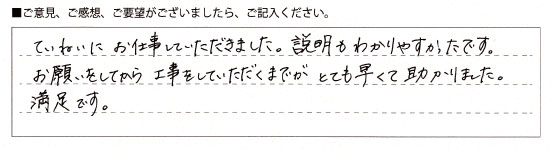 ■ご意見、ご感想、ご要望がございましたら、ご記入ください。
ていねいに お仕事していただきました。説明も わかりやすかったです。
お願いをしてから 工事をしていただくまでが とても早くて 助かりました。
満足です。